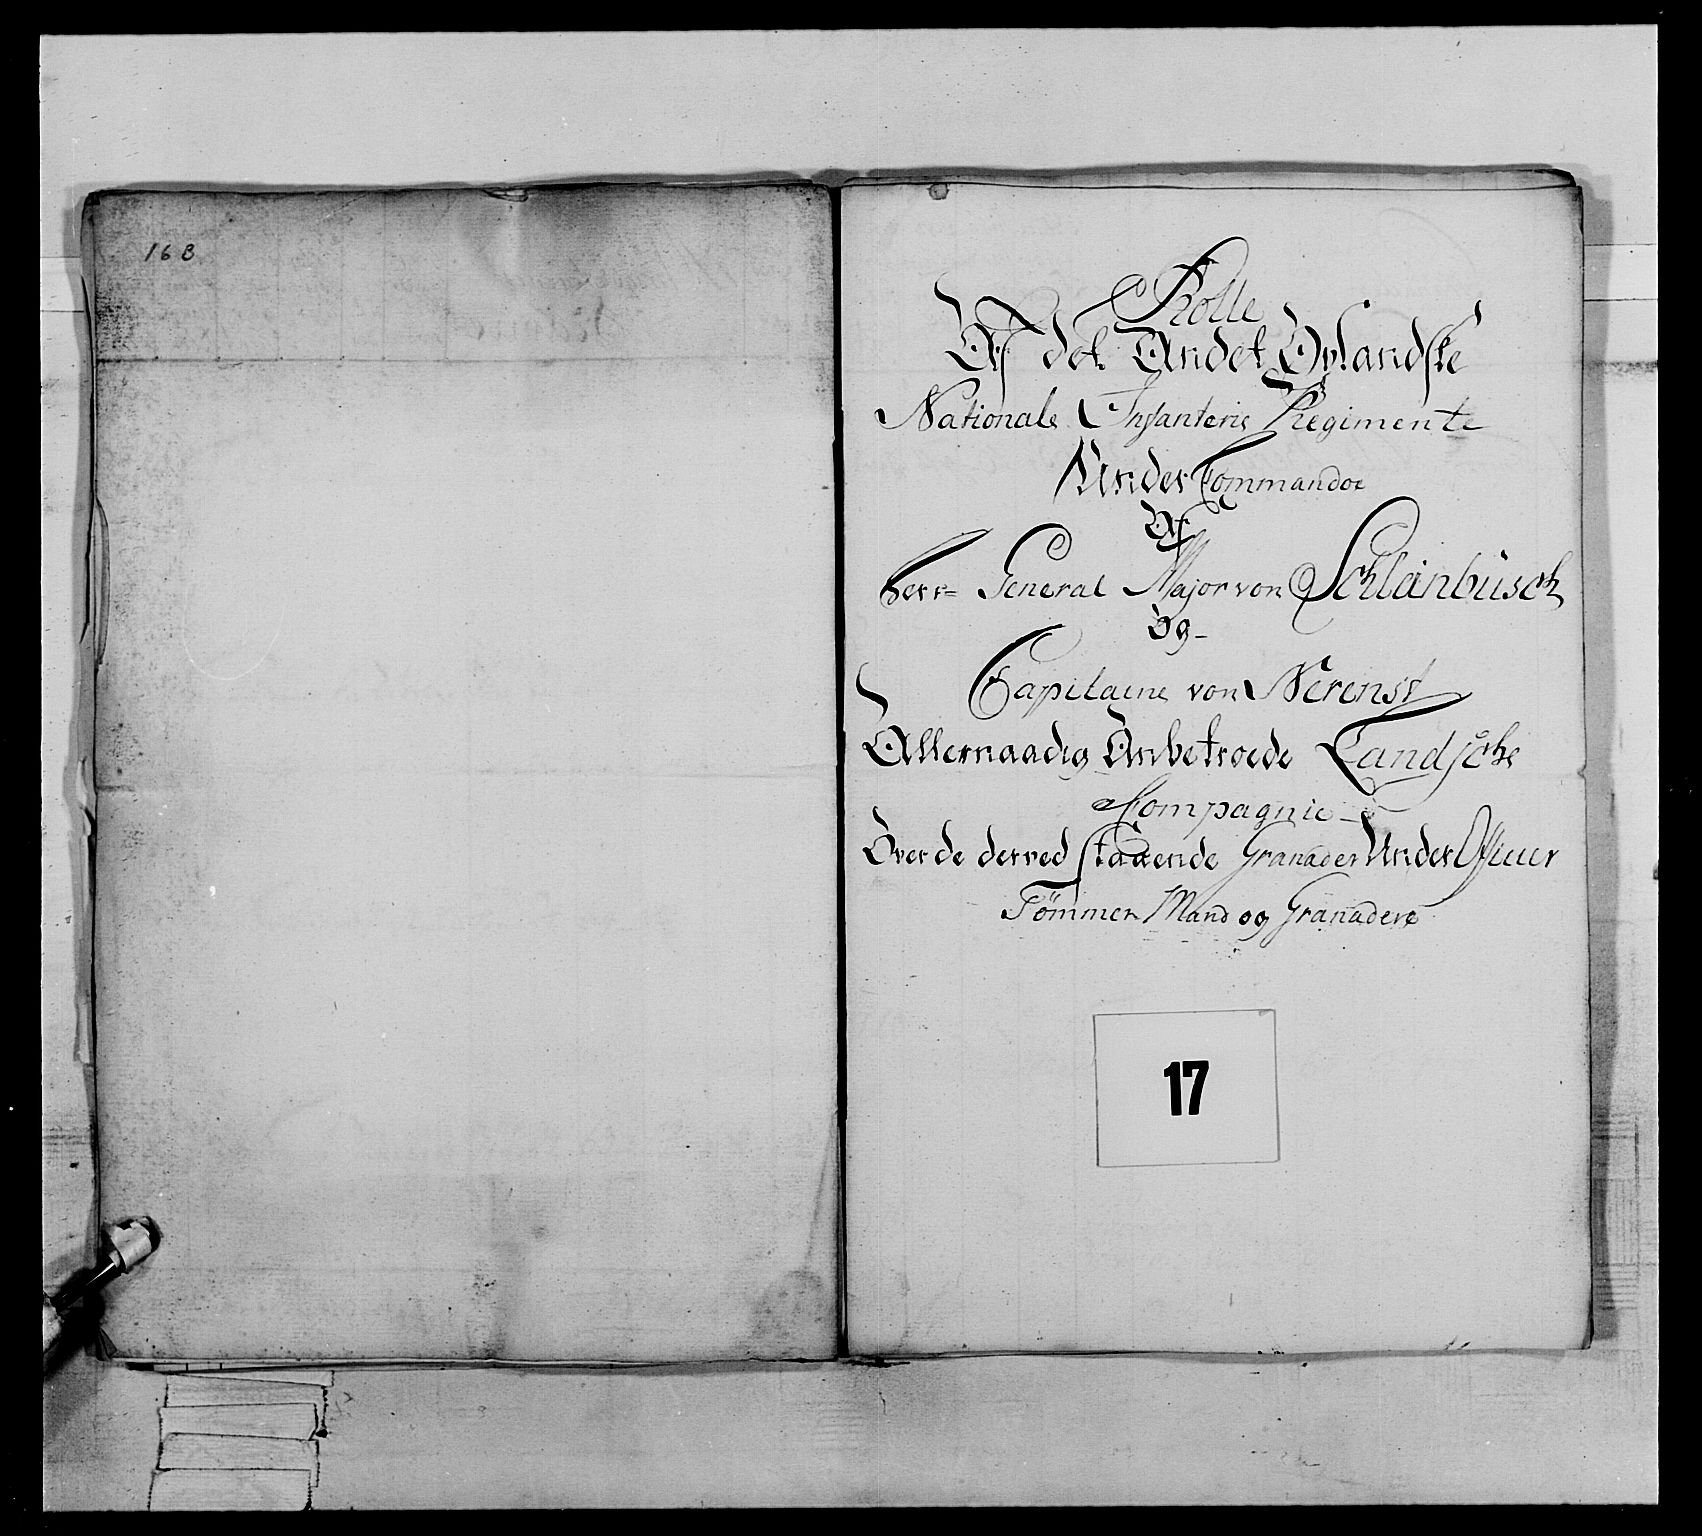 168
Rolle
Af det Andet Oplandske
Nationale Infanterie Regimente
Under Commandoe
Af
Herr= General Major von Schlanbusch
Og
Capitaine von Nerenst
Allernaadig Anbetroede Landsche
Compagnie
Over de derved staaende Granader Under Officier
Tømmer Mand og Granadere
17